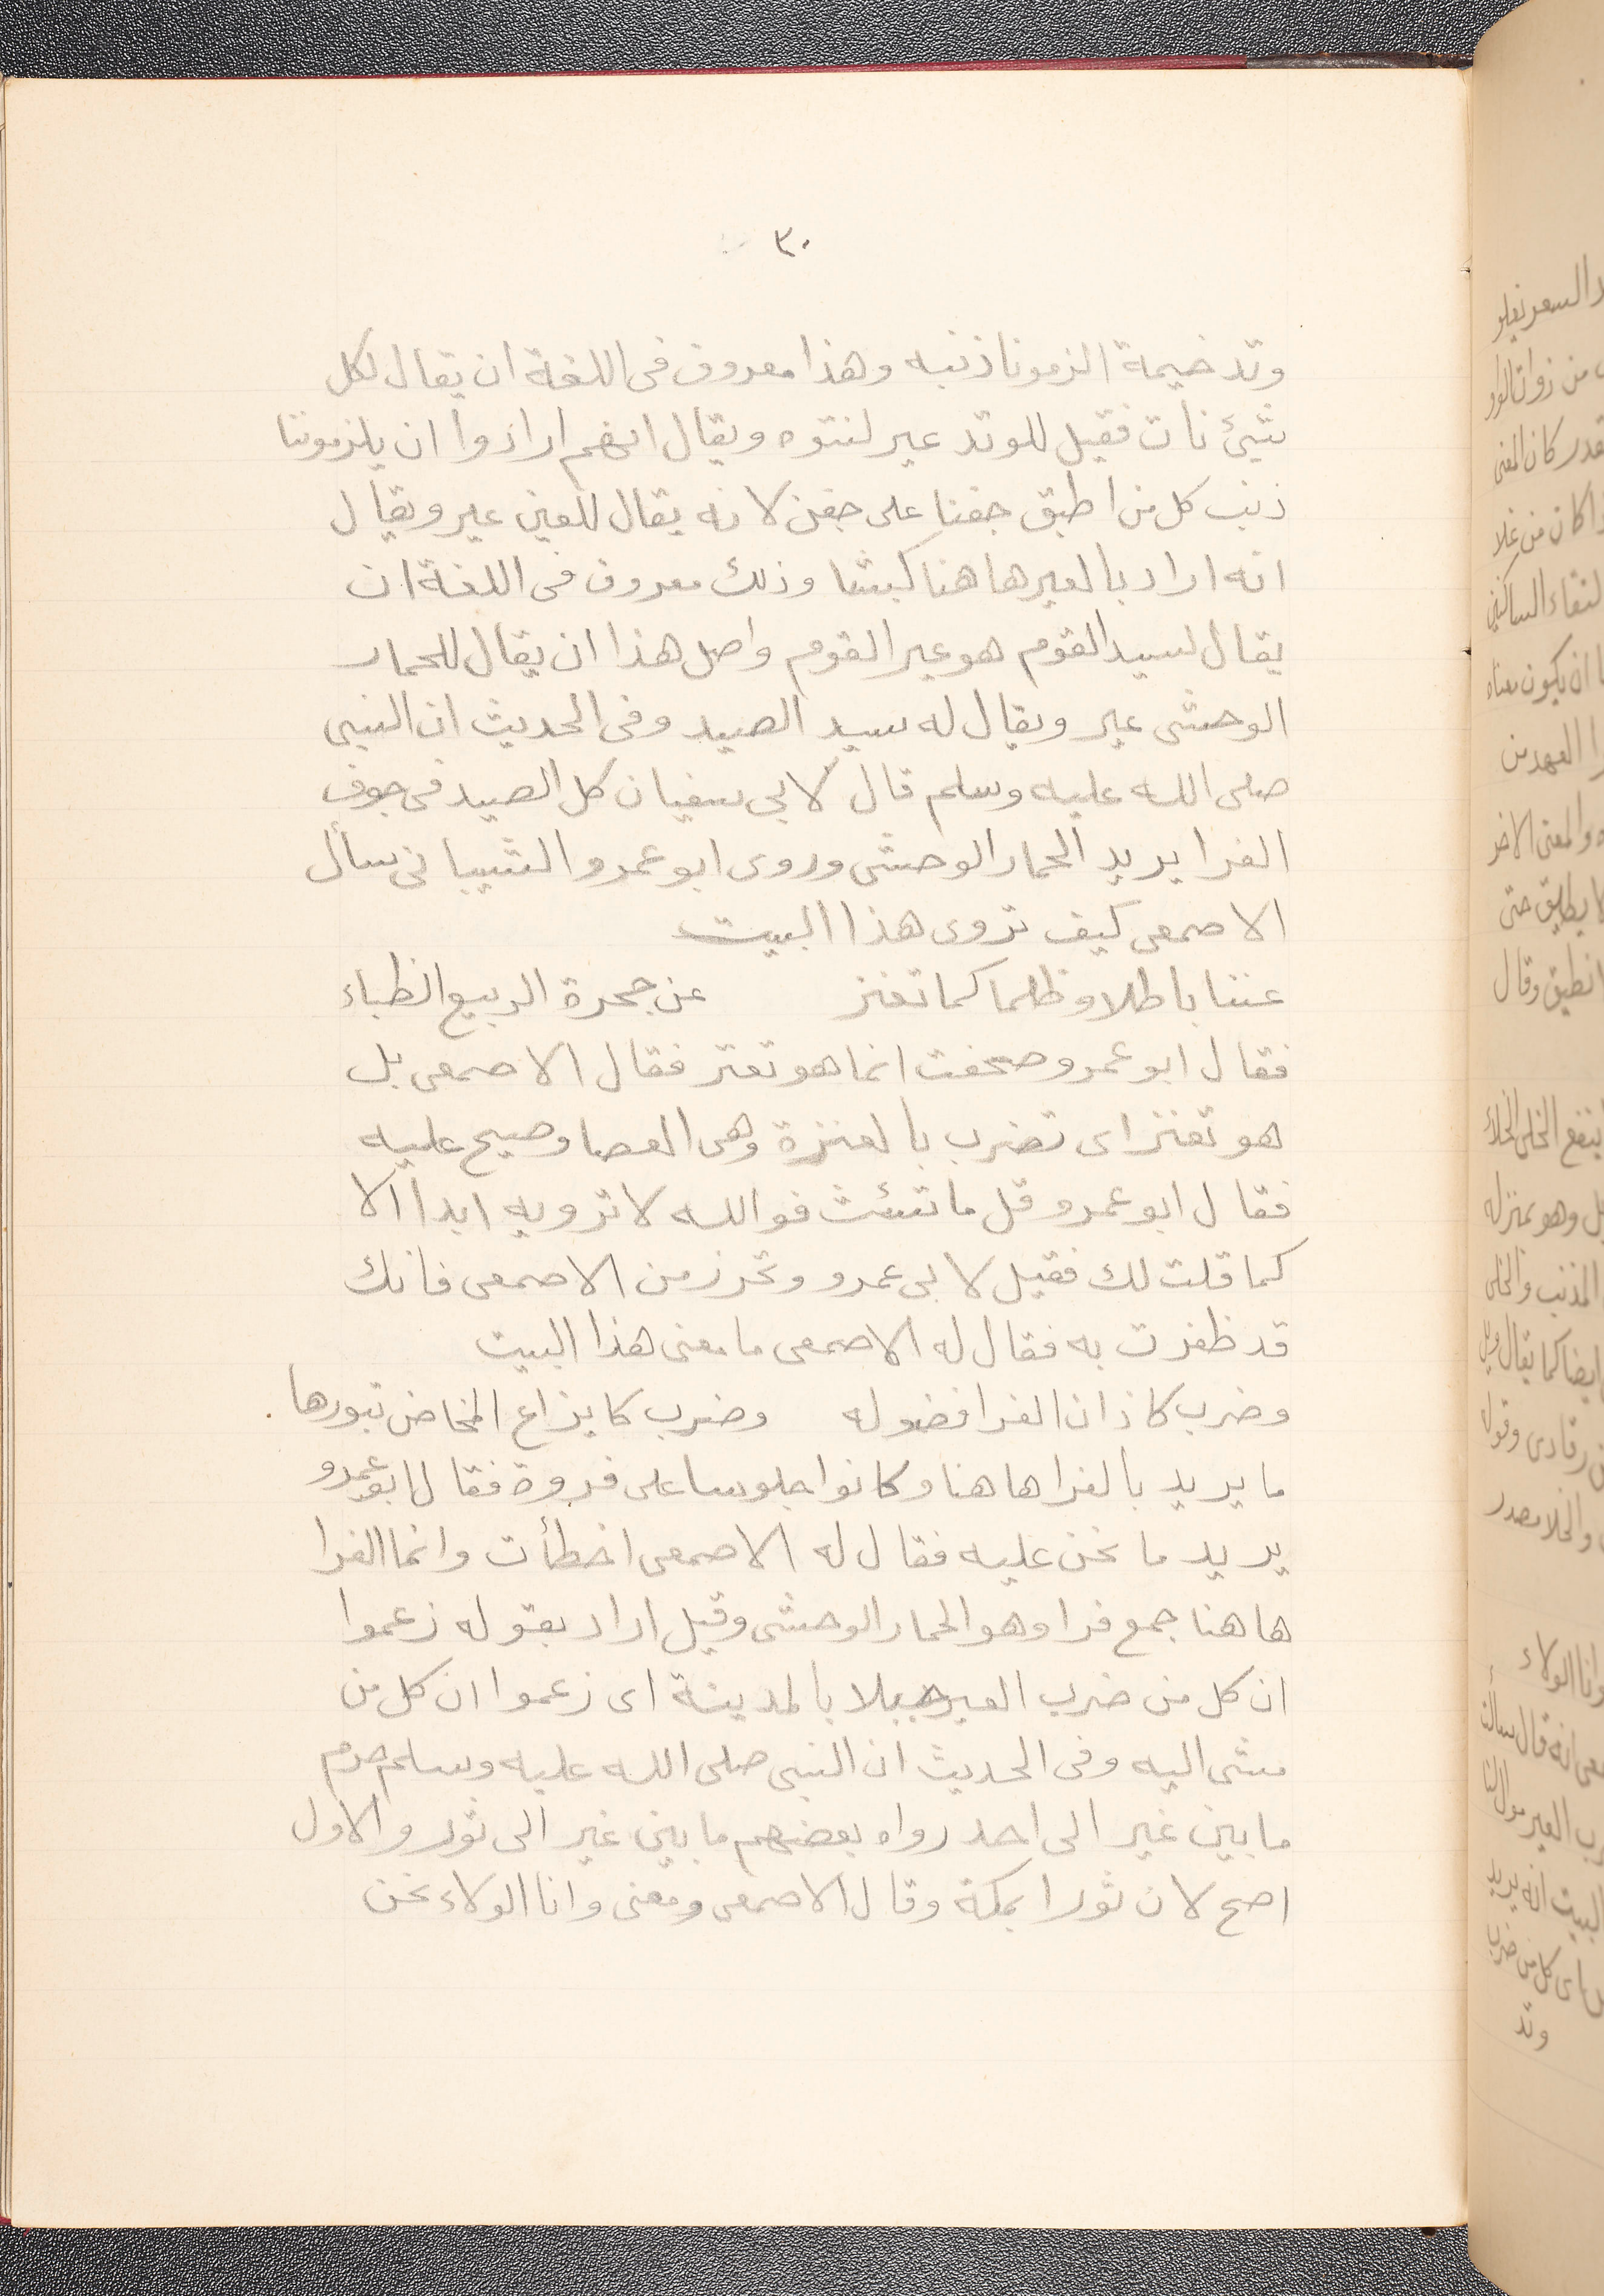 ٣٠
وتد خيمة الزمونا ذنبه وهذا معروف فى اللغة ان يقال لكل
شيئ نات فقيل للوتد عير لنتوه ويقال انهم ارادوا ان يلزموننا
ذنب كل من اطبق جفنا على جفن لانه يقال للعين عير ويقال
انه اراد بالعير هاهنا كبشا وذلك معروف فى اللغة ان
يقال لسيد القوم هو عير القوم واصل هذا ان يقال للحمار
الوحشى عير ويقال له سيد الصيد وفى الحديث ان النبى
صلى الله عليه وسلم قال لابى سفيان كل الصيد فى جوف
الفرا يريد الحمار الوحشى وروى ابو عمرو الشيبانى سأل
الاصمعى كيف تروى هذا البيت
عننا باطلا وظلما كما تعنز عن حجرة الربيع الظباء
فقال ابو عمرو صحفت انما هو تعتر فقال الاصمعى بل
هو تعنز اى تضرب بالعنزة وهى العصا وصيح عليه
فقال ابو عمرو قل ما شئت فوالله لا ترويه ابدا الا
كما قلت لك فقيل لابى عمرو وتحرز من الاصمعى فانك
قد ظفرت به فقال له الاصمعى ما معنى هذا البيت
وضرب كاذان الفرا فضوله وضرب كايزاع المخاض تبورها
ما يريد بالفرا هاهنا وكانوا جلوسا على فروة فقال ابو عمرو
يريد ما نحن عليه فقال له الاصمعى اخطأت وانما الفرا
هاهنا جمع فرا وهو الحمار الوحشى وقيل اراد بقوله زعموا
ان كل من ضرب العير جبلا بالمدينة اى زعموا ان كل من
مشى اليه وفى الحديث ان النبى صلى الله عليه وسلم حرم
ما بين عير الى احد رواه بعضهم ما بين عير الى ثور والاول
اصح لان ثورا بمكة وقال الاصمعى ومعنى وانا الولاء نحن